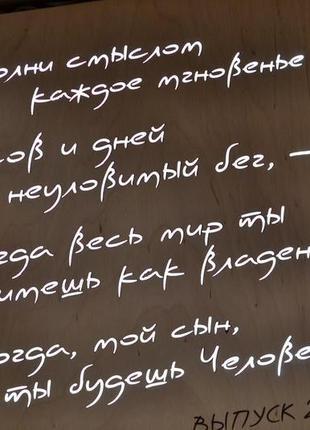 олни смыслом
каждое мгновенье
сов и дней
неуловимый бег, —
гда весь мир ты
имешь как владен
огда, мой сын,
ты будешь Челове
ВЫПУСК 2